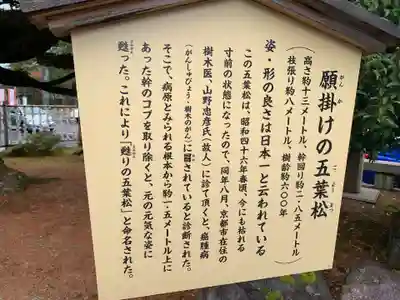 願掛けの五葉松
がんか
ごようまつ
（高さ約十三メートル、幹回り約二・八五メートル
枝張り約八メートル、樹齢約六〇〇年）
姿・形の良さは日本一と云われている
この五葉松は、昭和四十六年春頃、今にも枯れる
寸前の状態になったので、同年八月、京都市在住の
樹木医、山野忠彦氏（故人）に診て頂くと、癌腫病
（がんしゅびょう・樹木のがん）に罹されていると診断された。
そこで、病原とみられる根本から約一・五メートル上に
あった幹のコブを取り除くと、元の元気な姿に
甦った。これにより「甦りの五葉松」と命名された。